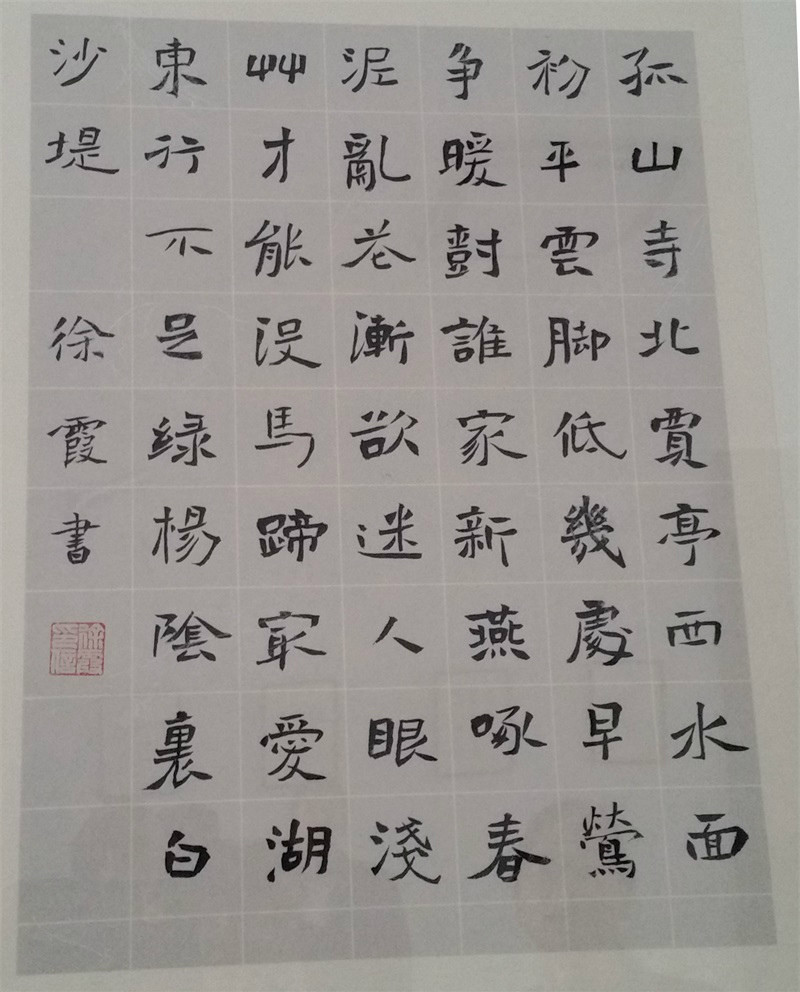 孤山寺北賈亭西水面
初平雲脚低幾處早鶯
争暖尌誰家新燕啄春
泥亂花漸欲迷人眼淺
艸才能没馬蹄冣愛湖
東行不足緑楊陰裏白
沙堤 徐霞書